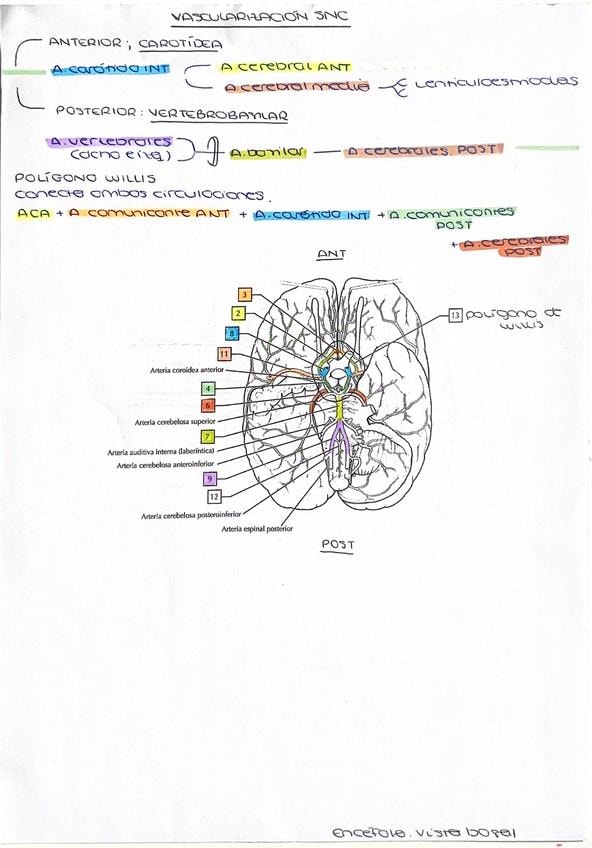 VASCULARIZACIÓN SNC
ANTERIOR; CAROTÍDEA
A. carótida INT
A cerebral ANT
A cerebral media
POSTERIOR: VERTEBROBASILAR
A. vertebrales
(dcha e izq)
A. basilar
A cerebrales. POST
POLÍGONO WILLIS
conecta ambas circulaciones.
ACA + A comunicante ANT + A. carótida INT + A. comunicantes
POST
+ A. cerebrales
POST
ANT
3
2
8
11
Arteria coroidea anterior
4
6
Arteria cerebelosa superior
7
Arteria auditiva interna (laberíntica)
Arteria cerebelosa anteroinferior
9
12
Arteria cerebelosa posteroinferior
Arteria espinal posterior
13 polígono de
willis
POST
Encéfalo. Vista basal